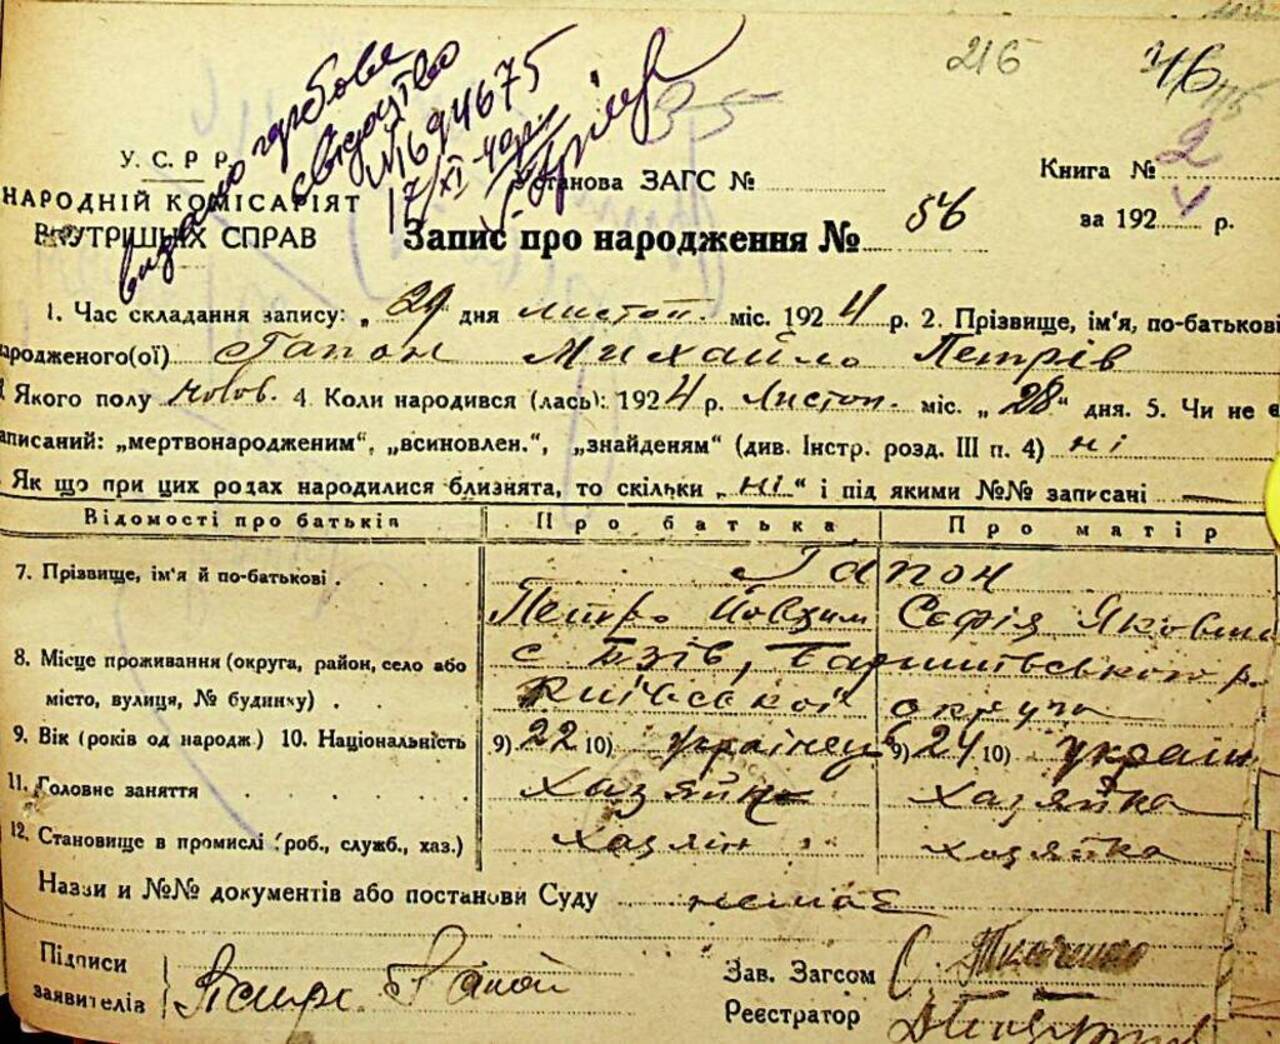 216 46
видано гербове
свідоцтво
№694675
17/XI-40р.
35
У. С. Р Р.
НАРОДНІЙ КОМІСАРІЯТ
ВНУТРІШНІХ СПРАВ
Установа ЗАГС №
Книга № 2
за 1924 р.
Запис про народження № 56
1. Час складання запису: „ 29 дня листоп. міс. 1924 р. 2. Прізвище, ім'я, по-батькові
народженого(ої) Гапон Михайло Петрів
Якого полу чолов. 4. Коли народився (лась): 1924 р. Листоп. міс. „ 28 “ дня. 5. Чи не є
аписаний: „мертвонародженим“, „всиновлен.“, „знайденям“ (див. Інстр. розд. III п. 4) ні
Як що при цих родах народилися близнята, то скільки „ ні “ і під якими №№ записані —
Відомості про батьків Про батька Про матір
7. Прізвище, ім'я й по-батькові . Гапон
Петро Йовхим Софія Яковна
8. Місце проживання (округа, район, село або
місто, вулиця, № будинку) .
с Бзів, Баришівського р.
Київської округи
9. Вік (років од народж.) 10. Національність 9) 22 10) українец 9) 21 10) україн
11. Головне заняття Хазяйн Хазяйка
12. Становище в промислі (роб., служб., хаз.) хазяін хазяйка
Назви и №№ документів або постанови Суду немає
Підписи
заявителів
Петро Гапон
Зав. Загсом Ткаченко
Реєстратор